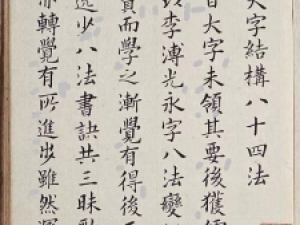 大字結構八十四法
大字未領其要後獲
李溥光永字八法變
而學之漸覺有得後
八法書訣共三昧
轉覺有所進步雖然